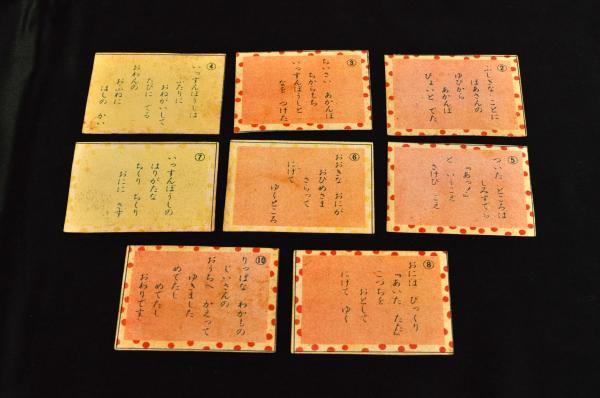 ④
いっすんぼうしは
ふたりに
おねがいして
たびに でる
おわんの
おふねに
はしの かい
③
ちいさい あかんぼ
ちからもち
いっすんぼうしと
なを つけた
②
ふしぎな ことに
ばあさんの
ゆびから
あかんぼ
ぴょいと でた
⑦
いっすんぼうしの
はりがたな
ちくり ちくり
おにに さす
⑥
おおきな おにが
おひめさま
さらって
にげて ゆくところ
⑤
ついた ところは
しみずでら
「あっ!」
と いうこえ
さけび こえ
⑩
りっぱな わかもの
じいさんの
おうちへ かえって
ゆきました
めでたし
めでたし
おわりです
⑧
おには びっくり
「あいた たた」
こづちを
おとして
にげて ゆく